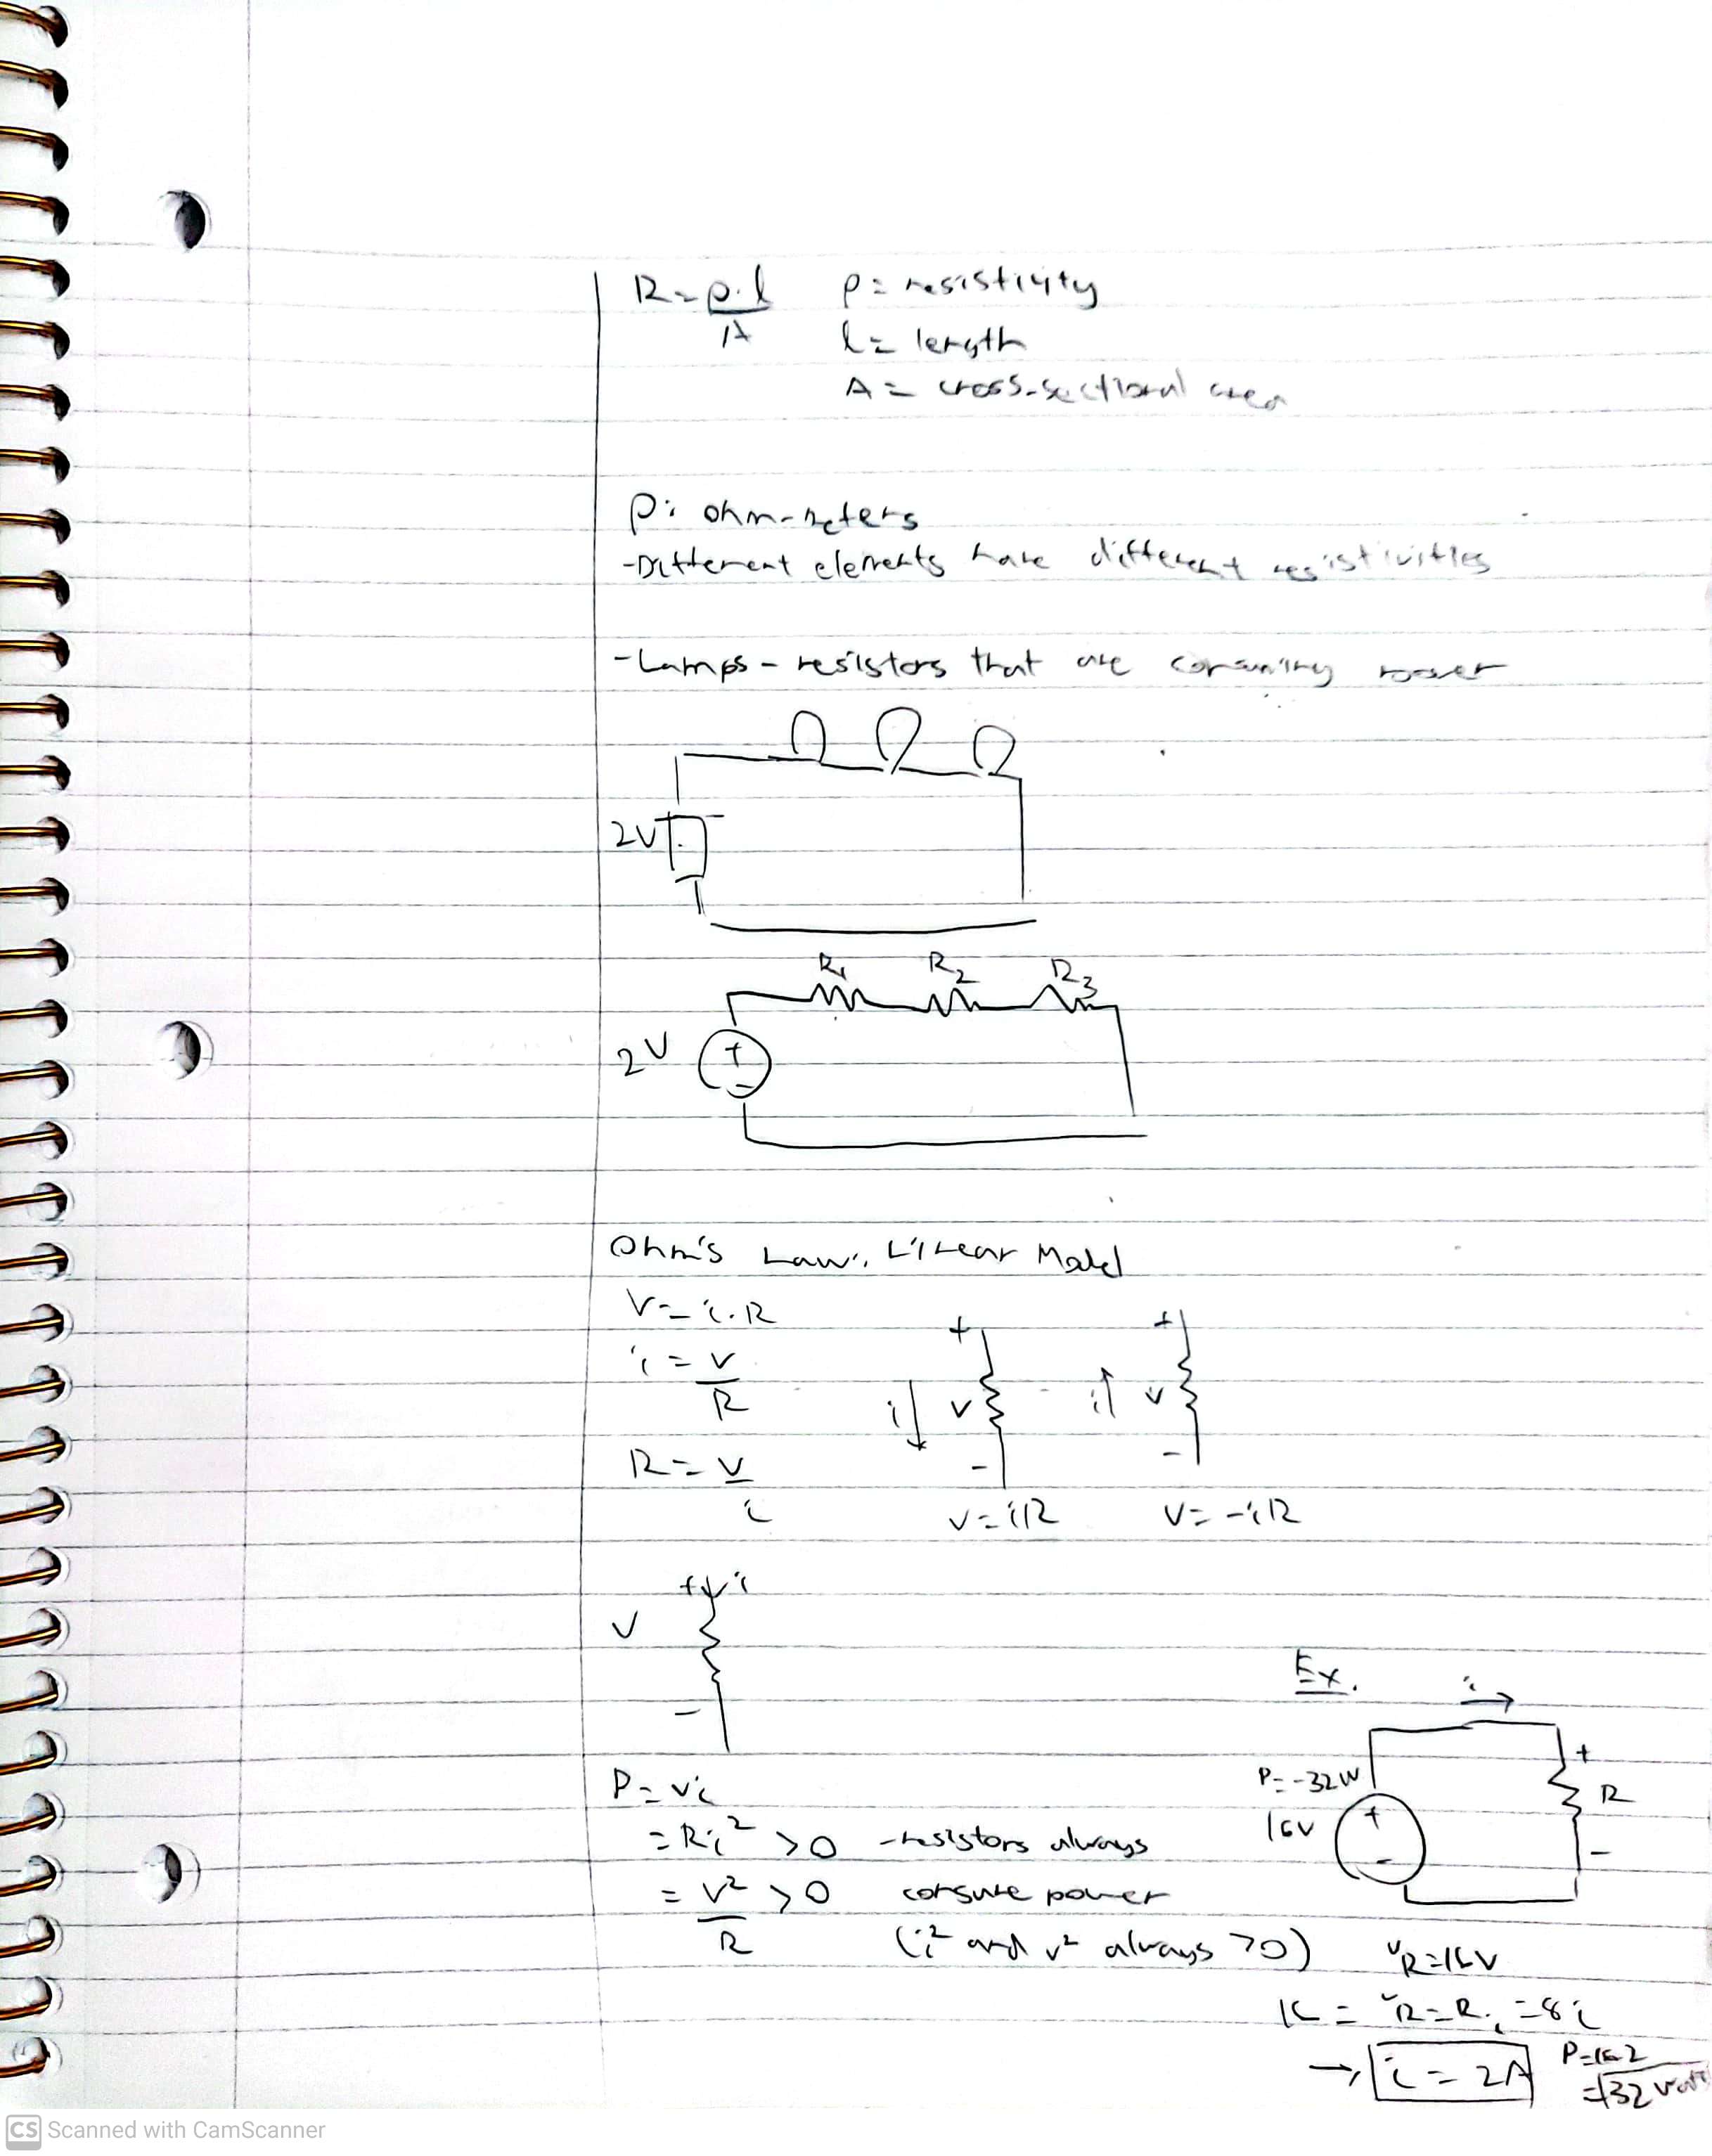 R = ρ·l / A   ρ = resistivity
l = length
A = cross-sectional area
ρ: ohm-meters
-Different elements have different resistivities
-Lamps - resistors that are consuming power
2V
R1 R2 R3
2V + -
Ohm's Law: Linear Model
V = i·R
i = V / R
R = V / i
+ i ↓ V -   + i ↑ V -
V = iR   V = -iR
+ i
V
-
Ex. i →
P = -32W
16V + -   + R -
P = Vi
= Ri² > 0   -resistors always
= V² / R > 0   consume power
(i² and v² always > 0)
vR = 16V
16 = vR = R·i = 8i
→ i = 2A
P = 16·2
= +32 watt
CS Scanned with CamScanner